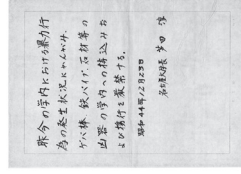 昨今の学内における暴力行
為の発生状況にかんがみ、
ゲバ棒、鉄パイプ、石材等の
凶器の学内への持込みお
よび携行を厳禁する。
昭和44年12月23日
名古屋大学長 芦田 淳